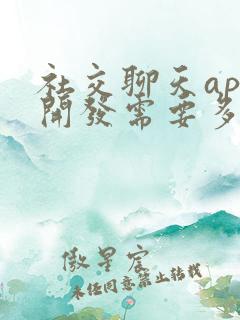 社交聊天ap
開發需要多
傲星宸
未经同意禁止转载